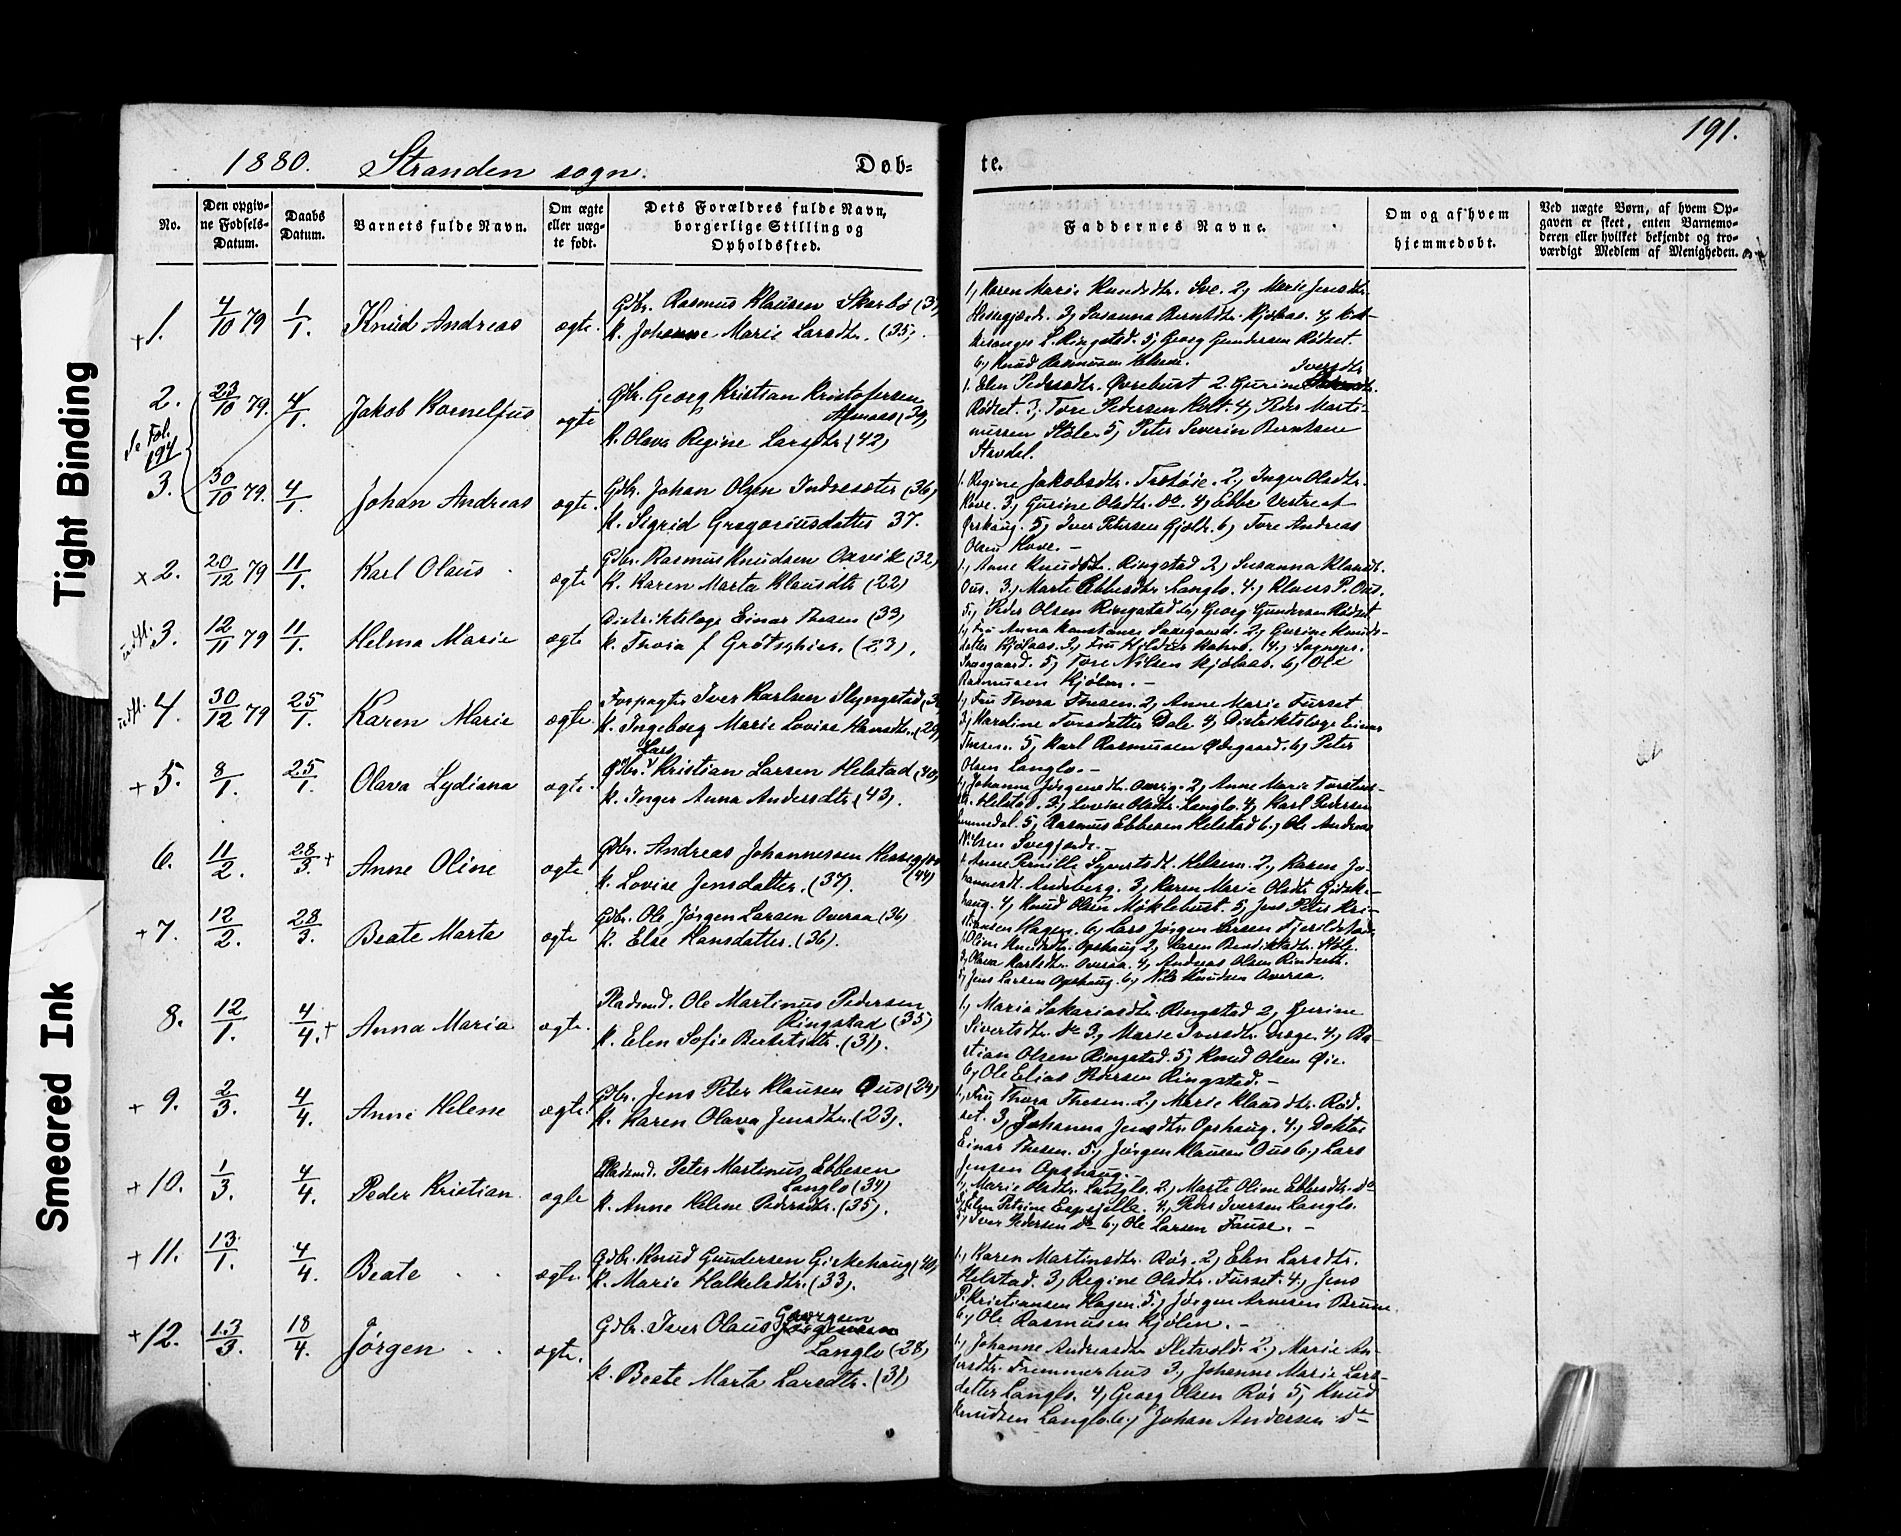 191.
1880. Stranden sogn.
Døb-
te.
No.
Den opgiv-
ne Fødsels-
Datum.
Daabs
Datum.
Barnets fulde Navn.
Om ægte
eller uæg-
te født.
Dets Forældres fulde Navn,
borgerlige Stilling og
Opholdssted.
Faddernes Navne.
Om og af hvem
hjemmedøbt.
Ved uægte Børn, af hvem Op-
gaven er skeet, enten Barnemo-
deren eller hvilket bekjendt og tro-
værdigt Medlem af Menigheden.
+1. 4/10 79 1/1. Knud Andreas ægte.
Gdbr. Rasmus Klausen Skarbø
K. Johanne Marie Larsdtr. (35).
1, Karen Marie Knudsdtr. Sve. 2, Marie Jensdtr.
Hessegjerd. 3, Susanna Berntdtr. Kjølaas. 4,
L. Ringstad. 5, Georg Gundersen Rødset.
6, Knud Rasmusen
2. 23/10 79. 4/1. Jakob Kornelius ægte
Gbr. Georg Kristian Kristofersen
(39)
K. Olava Regine Larsdtr (42)
Iversdtr
1. Elen Pedersdtr. Øvrebust 2. Gurine
Rødset. 3, Tore Pedersen Holt. 4, Peder Marti-
nussen Støle. 5, Peter Severin Berntsen
Stavdal.
Se Fol.
194
3. 30/10 79. 4/1. Johan Andreas ægte.
Gdbr. Johan Olsen Indresæter (36)
K. Sigrid Gregoriusdatter 37.
1. Regine Jakobsdtr. 2, Inger Olsdtr.
Hove. 3, Gurine Olsdtr. do. 4, Ebbe Vestreaf
Ørskoug. 5, Iver Petersen 6, Tore Andreas
Olsen Hove. -
x2. 20/12 79 11/1. Karl Olaus ægte
Gdbr. Rasmus Knudsen Oxvik (32)
K. Karen Marta Klausdtr (22)
1, Anne Knudsdtr. Ringstad 2, Susanna Klausdtr.
Ous. 3, Marte Ebbesdtr Langlo. 4, Klaus P. Ous.
5, Peder Olsen Ringstad 6, Georg Gundersen Rødset
3. 12/11 79 11/1. Helma Marie ægte
Distriktslæge Einar Thesen (39)
K. Thora f Grøtschier. (23).
1, Fru Anna Konstance Saxegaard. 2, Gurine Knuds-
datter Kjølaas. 3, Fru 4, Sognepr.
Saxegaard. 5, Tore Nilsen Kjølaas. 6, Ole
Rasmusen Kjølen. -
4. 30/12 79 25/1. Karen Marie ægte.
Forpagter Iver Karlsen Slyngstad
K. Ingeborg Marie Lovise Hansdtr. (29)
1, Fru Thora Thesen. 2, Anne Marie Furset
3, Karoline Torsdatter Dale. 4, Distriktslæge Einar
Thesen. 5, Karl Rasmusen Ødegaard. 6, Peter
Olsen Langlo. -
+5. 8/1. 25/1. Olava Lydiana ægte.
Lars
Gdbr. Kristian Larsen Helstad (40)
K. Inger Anna Andersdtr. (43).
1, Johanne Jørgensdtr. 2, Anne Marie Torstens-
dtr. Helstad. 3, Lovise Olsdtr. Langlo. 4, Karl Pedersen
5, Rasmus Ebbesen Helstad 6, Ole Andreas
Nilsen Svegjerde. -
6. 11/2. 28/3. + Anne Oline ægte.
Gdbr. Andreas Johannessen
(44)
K. Lovise Jensdatter. (37).
1 Anne Pernille Syvertsdtr. Helsem. 2, Karen Jo-
hannesdtr. Andsberg. 3, Karen Marie Olsdtr
haug. 4, Knud Olsen Møklebust. 5, Jens Peter Kri-
stiansen Hagen. 6, Lars Jørgen Larsen Fjeldstad
+7. 12/2. 28/3. Beate Marta ægte
Gdbr. Ole Jørgen Larsen Overaa (36)
K. Else Hansdatter. (36).
1, Oline Knudsdtr. Opshaug 2, Karen Bendiktsdtr.
3, Olava Karlsdtr. Overaa. 4, Andreas Olsen
5, Jens Larsen Opshaug. 6, Nils Knudsen Overaa.
8. 12/1. 4/4. + Anna Maria ægte.
Pladsmd. Ole Martinus Pedersen
Ringstad (35)
K. Elen Sofie (31).
1, Maria Sakariasdtr. Ringstad 2, Gurine
Sivertsdtr. do 3, Marie Iversdtr. 4, Ba-
stian Olsen Ringstad. 5, Knud Olsen Øie.
6, Ole Elias Pedersen Ringstad. -
+9. 2/3. 4/4. Anne Helene ægte.
Gdbr. Jens Peter Klausen Ous (24)
K. Karen Olava Jensdtr. (23).
1, Fru Thora Thesen. 2, Marie Klausdtr. Rød-
set. 3, Johanna Jensdtr. Opshaug. 4, Doktor
Einar Thesen. 5, Jørgen Klausen Ous 6, Lars
Jensen Opshaug. -
+10. 1/3. 4/4. Peder Kristian. ægte
Pladsmd. Peter Martinus Ebbesen
Langlo (34)
K. Anne Helene Pedersdtr. (35).
1, Marie Olsdtr. Langlo. 2, Marte Oline Ebbesdtr. do
3, Elen Petrine 4, Peder Iversen Langlo.
5, Iver Pedersen do 6, Ole Larsen Fause. -
+11. 13/1. 4/4. Beate ægte.
Gdbr. Knud Gundersen Girkehaug (40)
K. Marie Halkelsdtr. (33).
1, Karen Martinsdtr. Rør. 2, Elen Larsdtr.
Helstad. 3, Regine Olsdtr. Furset. 4, Jens
P. Kristiansen Hagen. 5, Jørgen Arnesen Brune.
6, Ole Rasmusen Kjølen. -
+12. 13/3. 18/4. Jørgen ægte.
Gdbr. Iver Olaus
Langlo (28)
K. Beate Marta Larsdtr. (31)
1, Johanne Andreasdtr Sletvold. 2, Marie An-
dersdtr. Fremmerhus 3, Johanne Marie Lars-
datter Langlo. 4, Georg Olsen Rør 5, Knud
Knudsen Langlo. 6, Johan Andersen do
Tight Binding
Smeared Ink